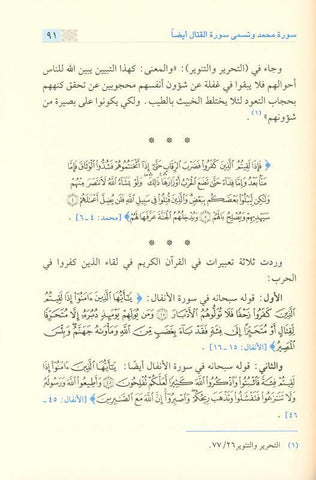 سورة محمد وتسمى سورة القتال أيضاً ٩١
وجاء في (التحرير والتنوير): «والمعنى: كهذا التبيين يبين الله للناس
أحوالهم فلا يبقوا في غفلة عن شؤون أنفسهم محجوبين عن تحقق كنههم
بحجاب التعود لئلا يختلط الخبيث بالطيب. ولكي يكونوا على بصيرة من
شؤونهم» (١).
* * *
﴿فَإِذَا لَقِيتُمُ الَّذِينَ كَفَرُوا فَضَرْبَ الرِّقَابِ حَتَّىٰ إِذَا أَثْخَنتُمُوهُمْ فَشُدُّوا الْوَثَاقَ فَإِمَّا
مَنًّا بَعْدُ وَإِمَّا فِدَاءً حَتَّىٰ تَضَعَ الْحَرْبُ أَوْزَارَهَا ذَٰلِكَ وَلَوْ يَشَاءُ اللَّهُ لَانتَصَرَ مِنْهُمْ
وَلَٰكِن لِّيَبْلُوَ بَعْضَكُم بِبَعْضٍ وَالَّذِينَ قُتِلُوا فِي سَبِيلِ اللَّهِ فَلَن يُضِلَّ أَعْمَالَهُمْ ﴿٤﴾
سَيَهْدِيهِمْ وَيُصْلِحُ بَالَهُمْ ﴿٥﴾ وَيُدْخِلُهُمُ الْجَنَّةَ عَرَّفَهَا لَهُمْ﴾ [محمد: ٤ - ٦]
* * *
وردت ثلاثة تعبيرات في القرآن الكريم في لقاء الذين كفروا في
الحرب:
الأول: قوله سبحانه في سورة الأنفال: ﴿يَا أَيُّهَا الَّذِينَ آمَنُوا إِذَا لَقِيتُمُ
الَّذِينَ كَفَرُوا زَحْفًا فَلَا تُوَلُّوهُمُ الْأَدْبَارَ ﴿١٥﴾ وَمَن يُوَلِّهِمْ يَوْمَئِذٍ دُبُرَهُ إِلَّا مُتَحَرِّفًا
لِّقِتَالٍ أَوْ مُتَحَيِّزًا إِلَىٰ فِئَةٍ فَقَدْ بَاءَ بِغَضَبٍ مِّنَ اللَّهِ وَمَأْوَاهُ جَهَنَّمُ وَبِئْسَ
الْمَصِيرُ﴾ [الأنفال: ١٥ - ١٦].
والثاني: قوله سبحانه في سورة الأنفال أيضًا: ﴿يَا أَيُّهَا الَّذِينَ آمَنُوا إِذَا
لَقِيتُمْ فِئَةً فَاثْبُتُوا وَاذْكُرُوا اللَّهَ كَثِيرًا لَّعَلَّكُمْ تُفْلِحُونَ ﴿٤٥﴾ وَأَطِيعُوا اللَّهَ وَرَسُولَهُ
وَلَا تَنَازَعُوا فَتَفْشَلُوا وَتَذْهَبَ رِيحُكُمْ وَاصْبِرُوا إِنَّ اللَّهَ مَعَ الصَّابِرِينَ﴾ [الأنفال: ٤٥ -
٤٦].
(١) التحرير والتنوير ٢٦/ ٧٧.